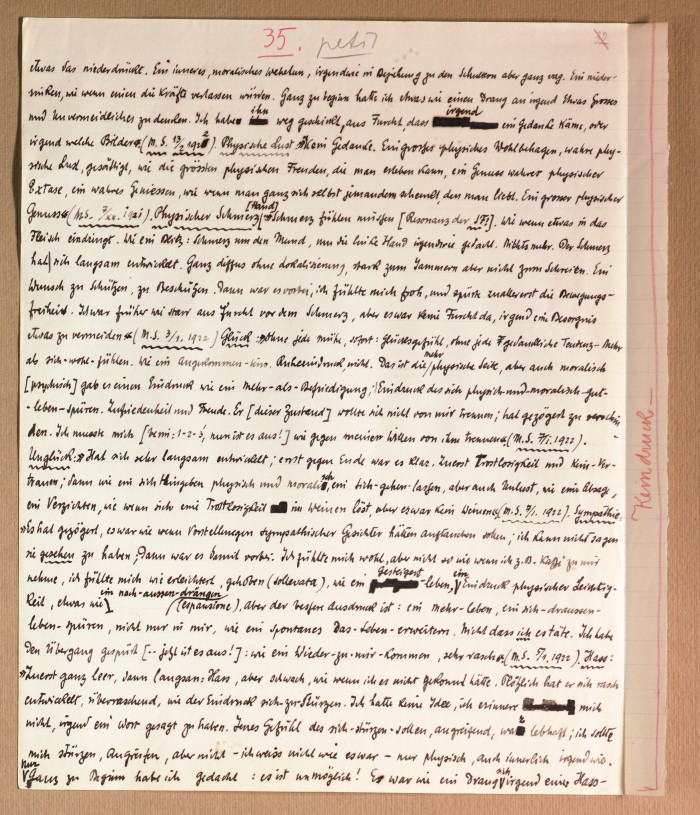 35. petit
32
etwas das niederdrückt. Ein inneres, moralisches Wehetun, irgendwie in Beziehung zu den Schultern aber ganz vag. Ein nieder-
sinken, wie wenn einen die Kräfte verlassen würden. Ganz zu Beginn hatte ich etwas wie einen Drang an irgend Etwas Grosses
und Unvermeidliches zu denken. Ich habe ihn weg geschickt, aus Furcht, dass irgend ein Gedanke käme, oder
irgend welche Bilder« (M.S. 13/2 1922). Physische Lust: »Kein Gedanke. Ein grosses physisches Wohlbehagen, wahre phy-
sische Lust, gesättigt, wie die grössten physischen Freuden, die man erleben kann, ein Genuss wahrer physischer
Extase, ein wahres Geniessen, wie wenn man ganz sich selbst jemandem schenkt, den man liebt. Ein grosser physischer
Genuss« (M.S. 1921). Physischer Schmerz [Hand]: »Schmerz fühlen müssen [Resonanz der 1F], wie wenn etwas in das
Fleisch eindringt. Wie ein Blitz: Schmerz um den Mund, um die linke Hand irgendwie gedacht. Nichts mehr. Der Schmerz
hat sich langsam entwickelt. Ganz diffus ohne Lokalisierung, stark zum Jammern aber nicht zum Schreien. Ein
Wunsch zu Schützen, zu Beschützen. Dann war es vorbei, ich fühlte mich froh, und spürte zuallererst die Bewegungs-
freiheit. Ich war früher wie starr aus Furcht vor dem Schmerz, aber es war keine Furcht da, irgend eine Besorgnis
etwas zu vermeiden« (M.S. 3/1. 1922) Glück: »ohne jede Müh, sofort: Glücksgefühl, ohne jede gedankliche Tendenz- Mehr
als sich-wohl-fühlen. Wie ein Angekommen-sein. Ruheeindruck nicht. Das ist die mehr physische Seite, aber auch moralisch
[psychisch] gab es einen Eindruck wie ein Mehr-als-Befriedigung; Eindruck des sich physisch-und-moralisch-gut-
-leben-Spüren. Zufriedenheit und Freude. Er [dieser Zustand] wollte sich nicht von mir trennen; hat gezögert zu verschwin
den. Ich musste mich [beim: 1-2-3, nun ist es aus!] wie gegen meinen Willen von ihm trennen« (M.S. 5/1. 1922).
Unglück: »Hat sich sehr langsam entwickelt; erst gegen Ende war es klar. Zuerst Trostlosigkeit und Kein-Ver-
trauen; dann wie ein sich hingeben physisch und moralisch, ein sich-gehen-lassen, aber auch Unlust, wie eine Absage,
ein Verzichten, wie wenn sich eine Trostlosigkeit im Weinen löst, aber es war kein Weinen« (M.S. 5/1. 1922). Sympathie:
»Es hat gezögert, es war wie wenn Vorstellungen sympathischer Gesichter hätten auftauchen sollen; ich kann nicht sagen
sie gesehen zu haben; dann war es damit vorbei. Ich fühlte mich wohl, aber nicht so wie wenn ich z.B. Kaffe zu mir
nehme, ich fühlte mich wie erleichtert, gehoben (sollevata), wie ein gesteigert-leben, ein Eindruck physischer Leichtig-
keit, etwas wie ein nach-aussen-drängen (espansione), aber der besser Ausdruck ist: ein mehr-leben, ein sich-draussen-
leben-spüren, nicht nur in mir, wie ein spontanes Das-Leben-erweitern. Nicht dass ich es täte. Ich habe
den Übergang gespürt [-- jetzt ist es aus!]: wie ein Wieder-zu-mir-kommen, sehr rasch« (M.S. 5/1. 1922). Hass:
»Zuerst ganz leer, dann langsam: Hass, aber schwach, wie wenn ich es nicht gekonnt hätte. Plötzlich hat er sich rasch
entwickelt, überraschend, wie der Eindruck sich-zu-Stürzen. Ich hatte keine Idee, ich erinnere mich
nicht, irgend ein Wort gesagt zu haben. Jenes Gefühl des sich-stürzen-sollen, angreifend, war lebhaft; ich sollte
mich stürzen, angreifen, aber nicht - ich weiss nicht wie es war - nur physisch, auch innerlich irgendwie.
nur Ganz zu Beginn habe ich gedacht: es ist unmöglich! Es war wie ein Drang sich irgend eine Hass-
Kleindruck